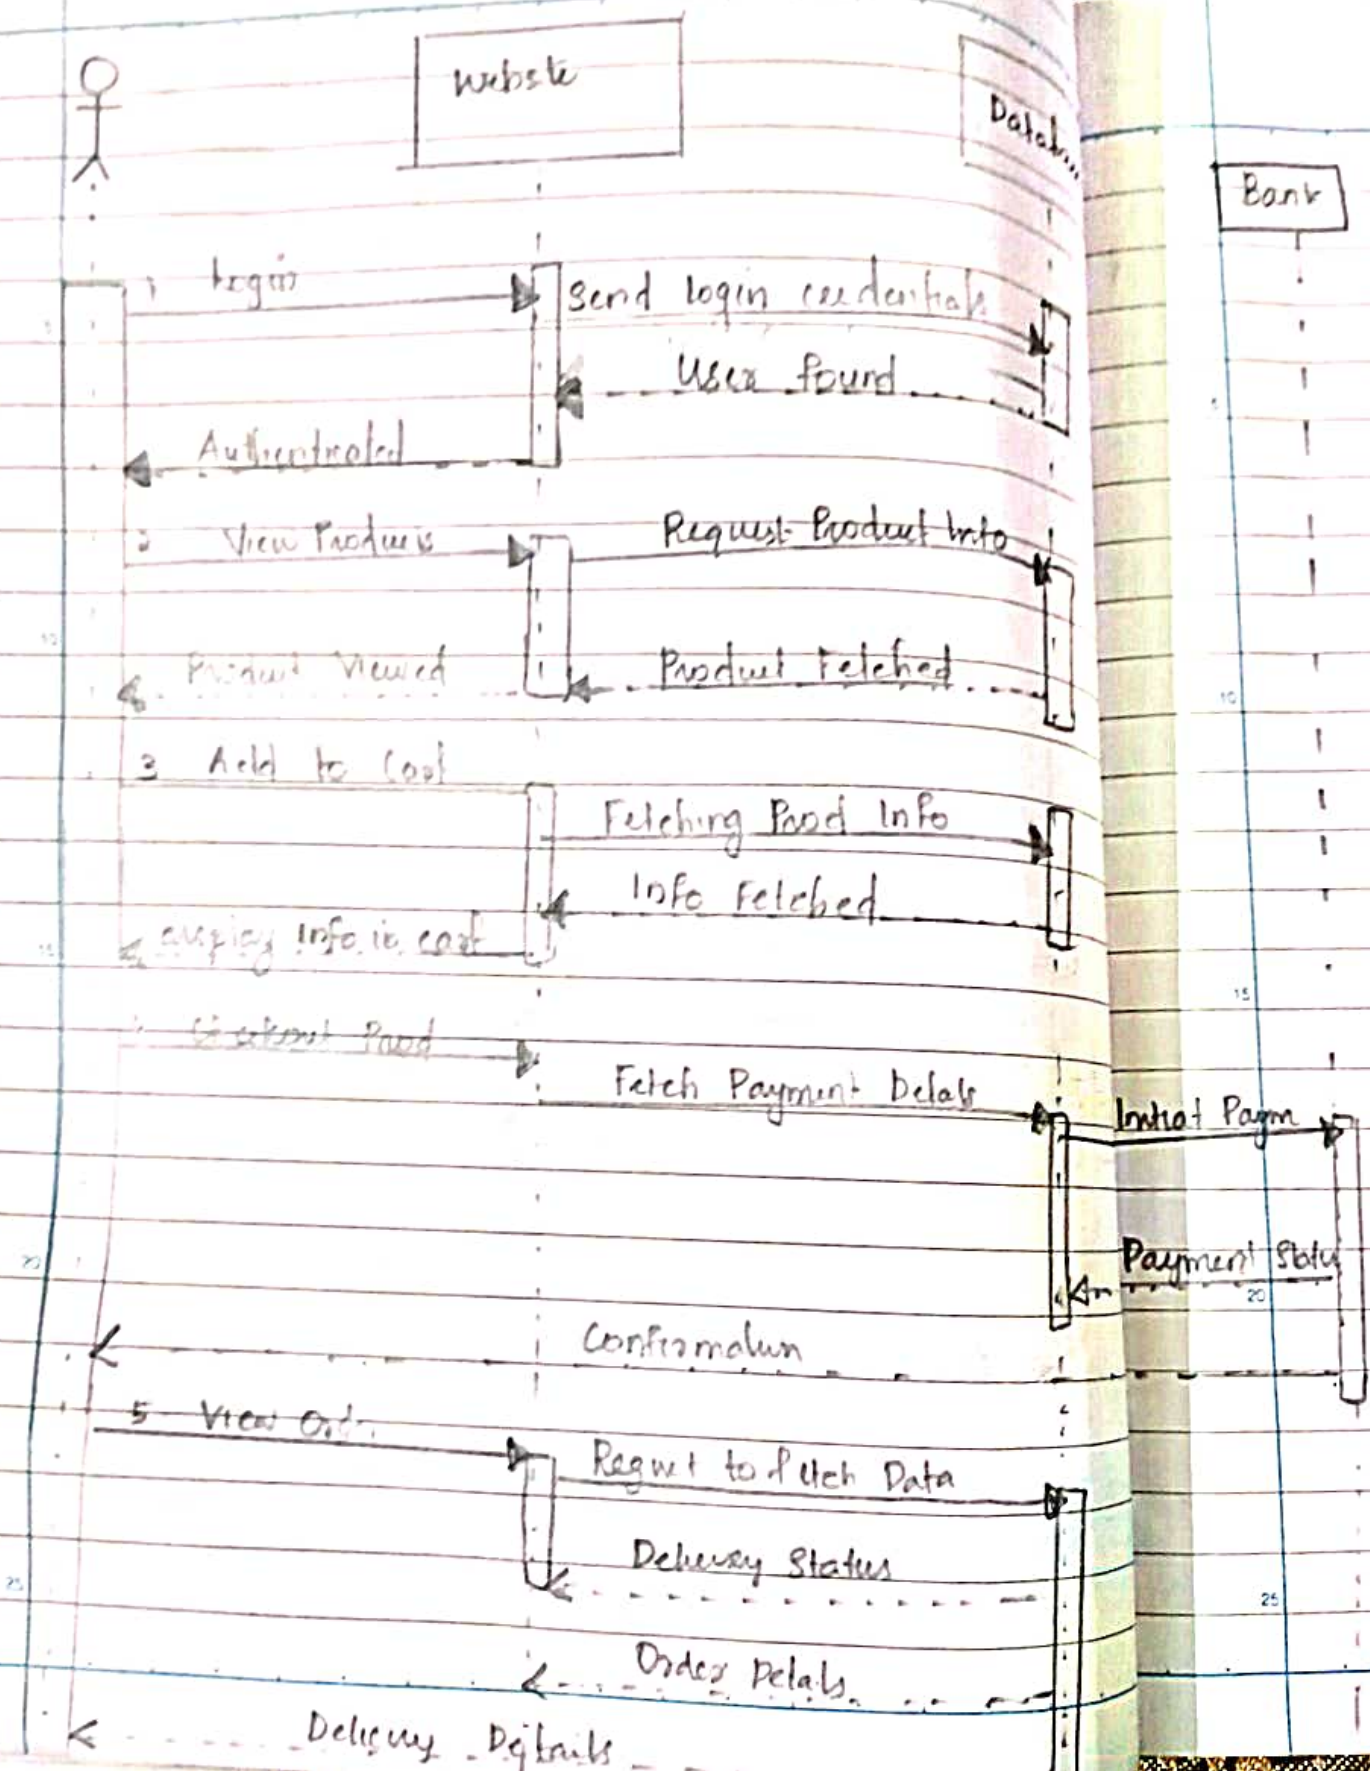 Webste
Bank
1 Login
Send login credentials
User found
Authenticated
2 View Products
Request Product Info
Product Viewed
Product Fetched
3 Add to Cart
Fetching Prod Info
Info Fetched
display info in cart
Prod
Fetch Payment Detals
Initiat Paym
Payment Statu
Confirmation
5 View
Request to fetch Data
Delivery Status
Order Detals
Delivery Details
5
10
15
20
25
10
15
20
25